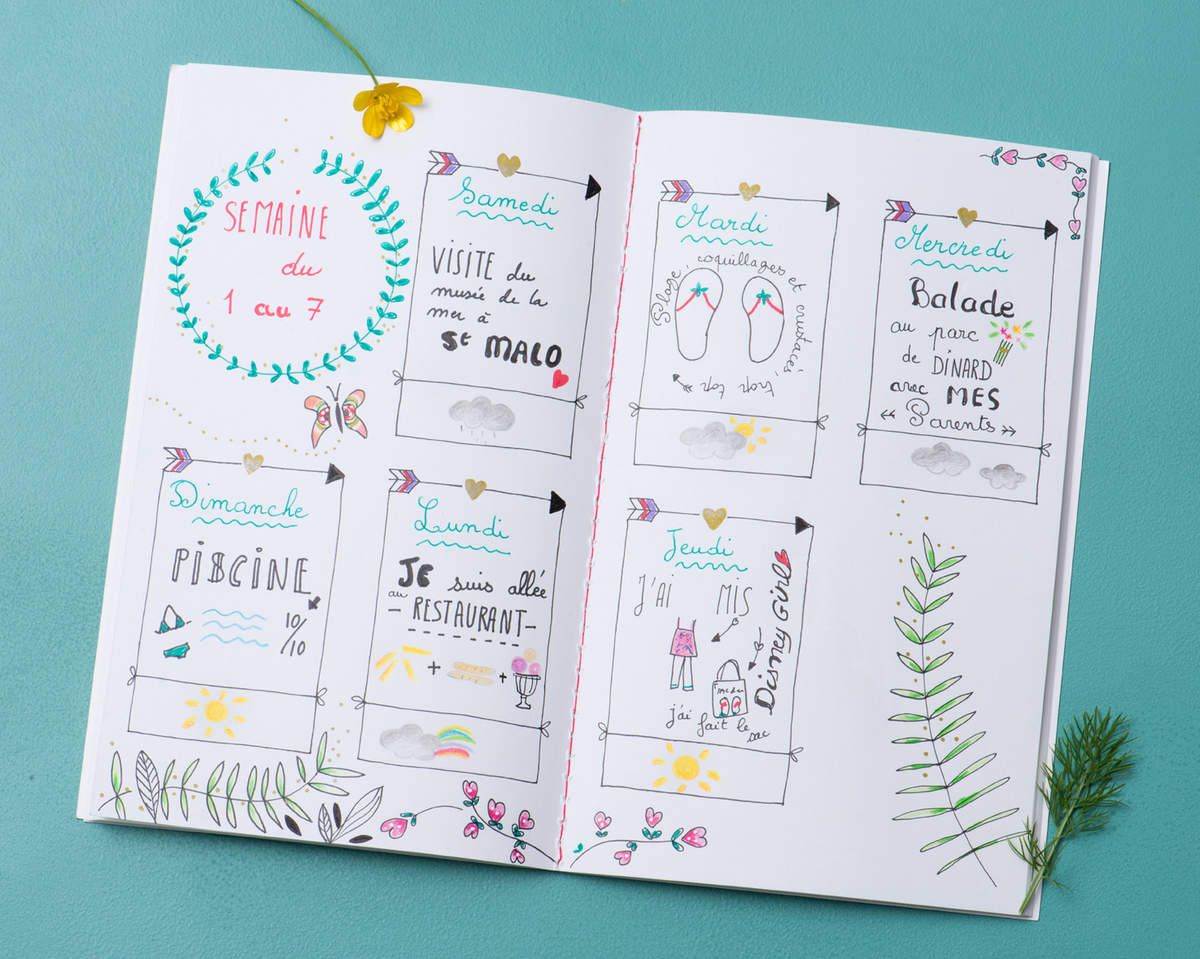 SEMAINE
du
1 au 7
Samedi
VISITE du
musée de la
mer à
St MALO
Dimanche
PISCINE
10/10
Lundi
JE suis allée
au
- RESTAURANT -
+
+
Mardi
coquillages et crustacés,
trop top
Mercredi
Balade
au parc
de DINARD
avec MES
Parents
Jeudi
J'AI MIS
Disney Girl
j'ai fait le
sac